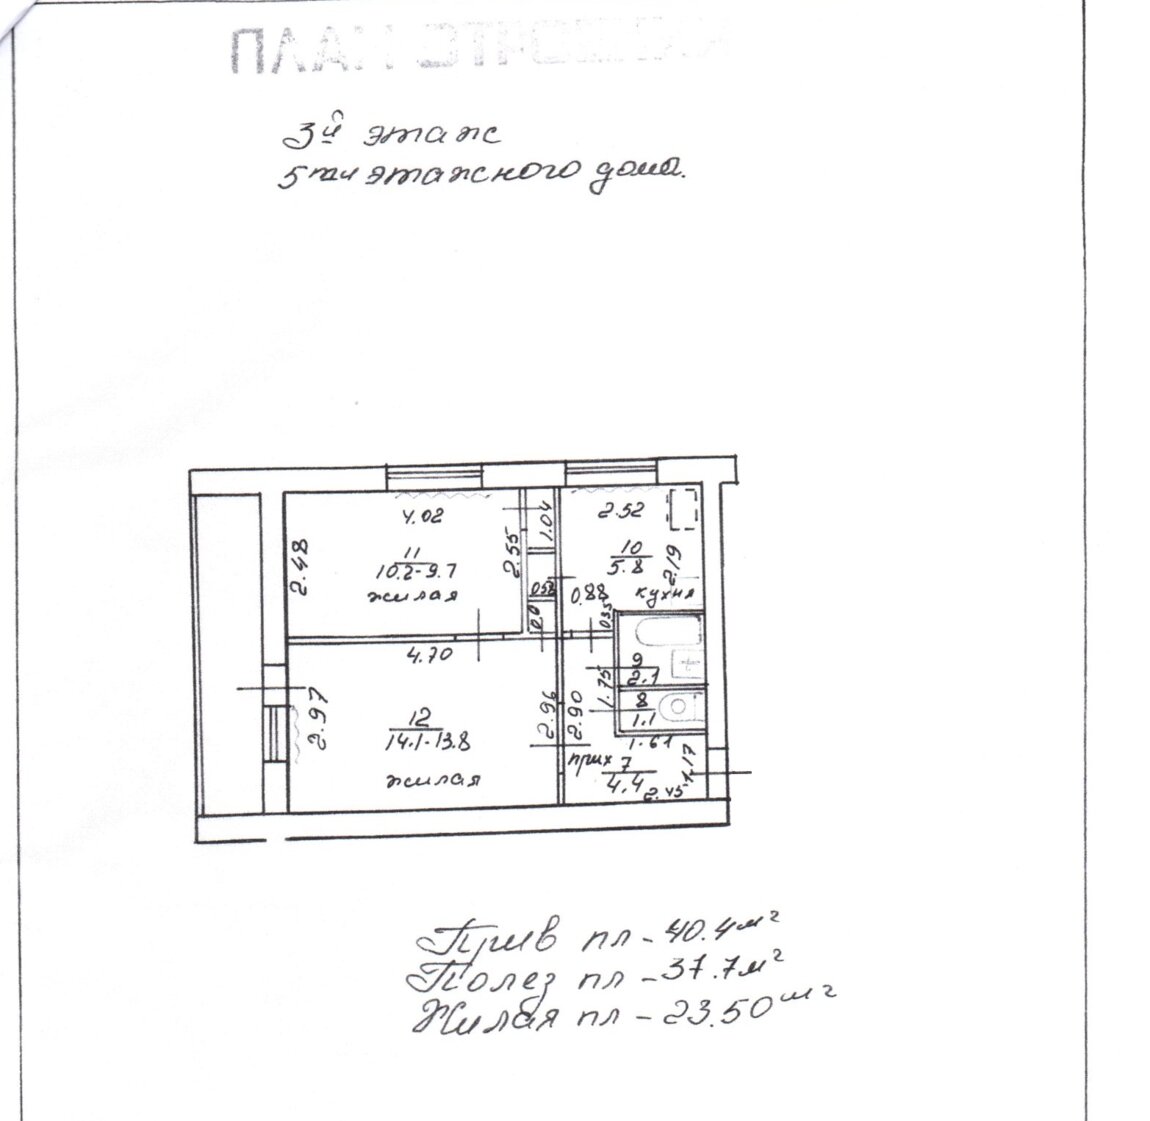 3й этаж
5ти этажного дома.
4.02
2.52
1.04
2.48
2.55
11
10.2-9.7
жилая
10
5.8
2.19
кухня
0.58
0.88
0.35
4.70
9
2.1
1.75
8
1.1
2.97
12
14.1-13.8
жилая
2.96
2.90
1.61
прих
7
4.4
1.17
2.45
Прив пл - 40.4 м²
Полез пл - 37.7 м²
Жилая пл - 23.50 м²